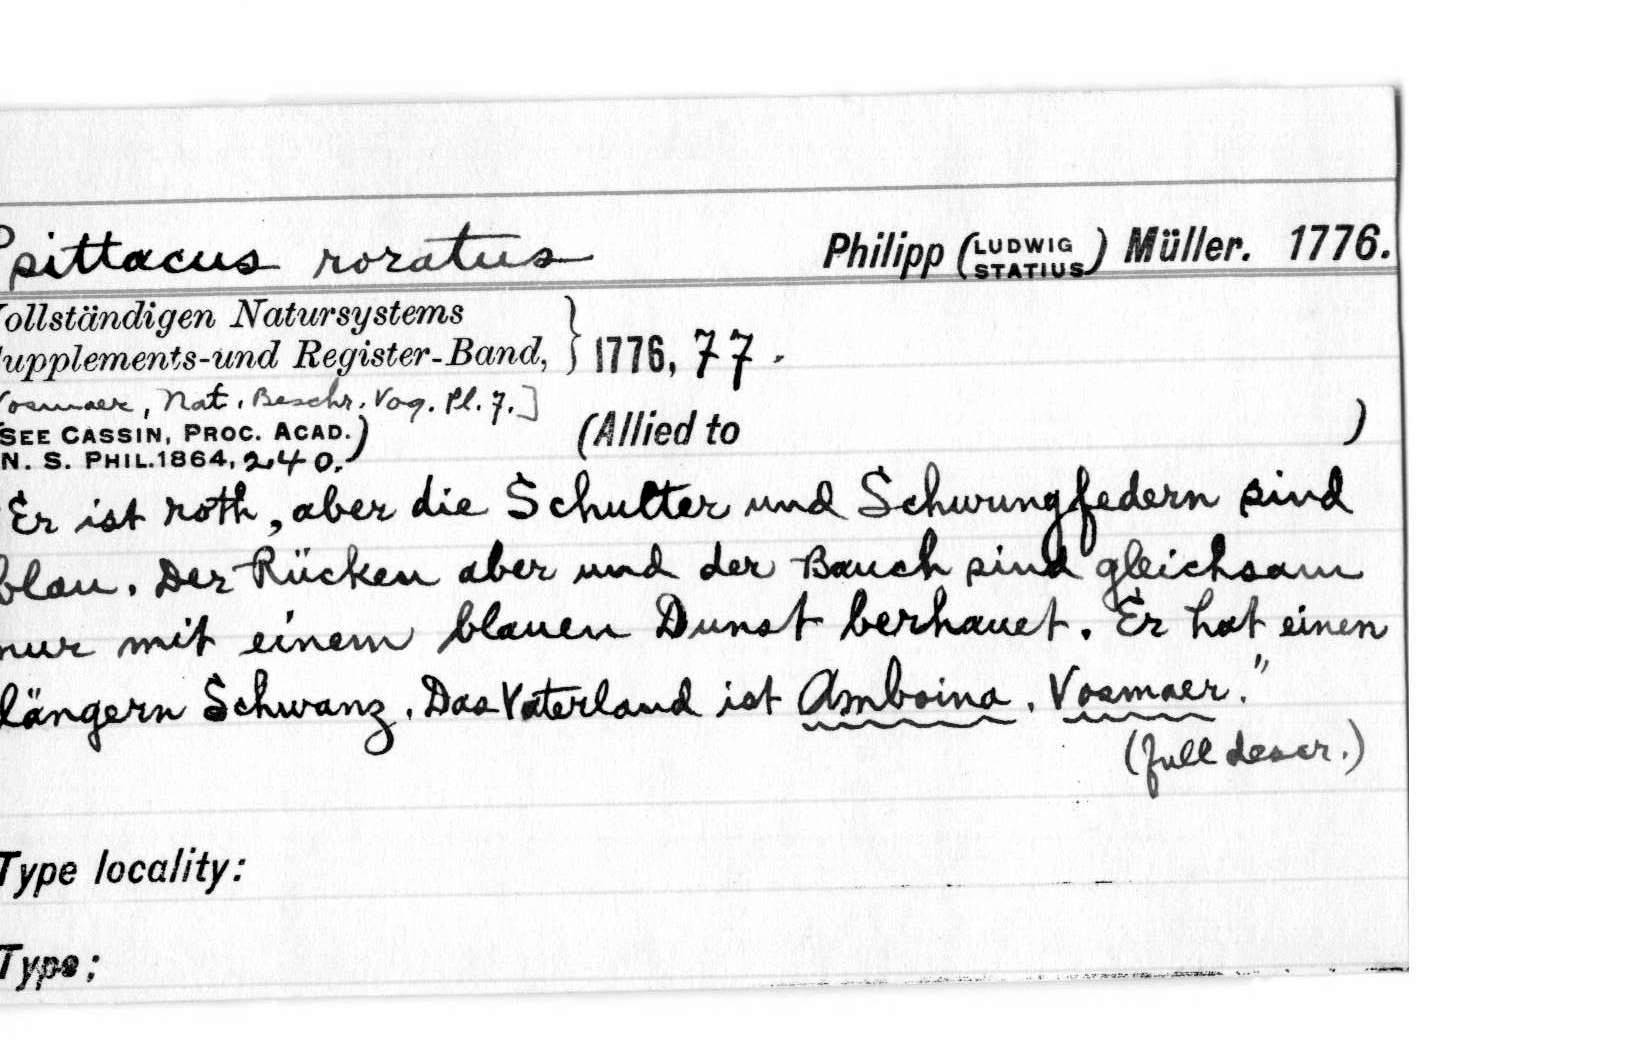 Psittacus roratus Philipp (LUDWIG STATIUS) Müller. 1776.
Vollständigen Natursystems
Supplements-und Register-Band, } 1776, 77.
Vosmaer, Nat. Beschr. Vog. Pl. 7.]
SEE CASSIN, PROC. ACAD.
N. S. PHIL. 1864, 240.) (Allied to )
Er ist roth, aber die Schulter und Schwungfedern sind
blau. Der Rücken aber und der Bauch sind gleichsam
nur mit einem blauen Dunst berhauet. Er hat einen
längern Schwanz. Das Vaterland ist Amboina. Vosmaer."
(full descr.)
Type locality:
Type;